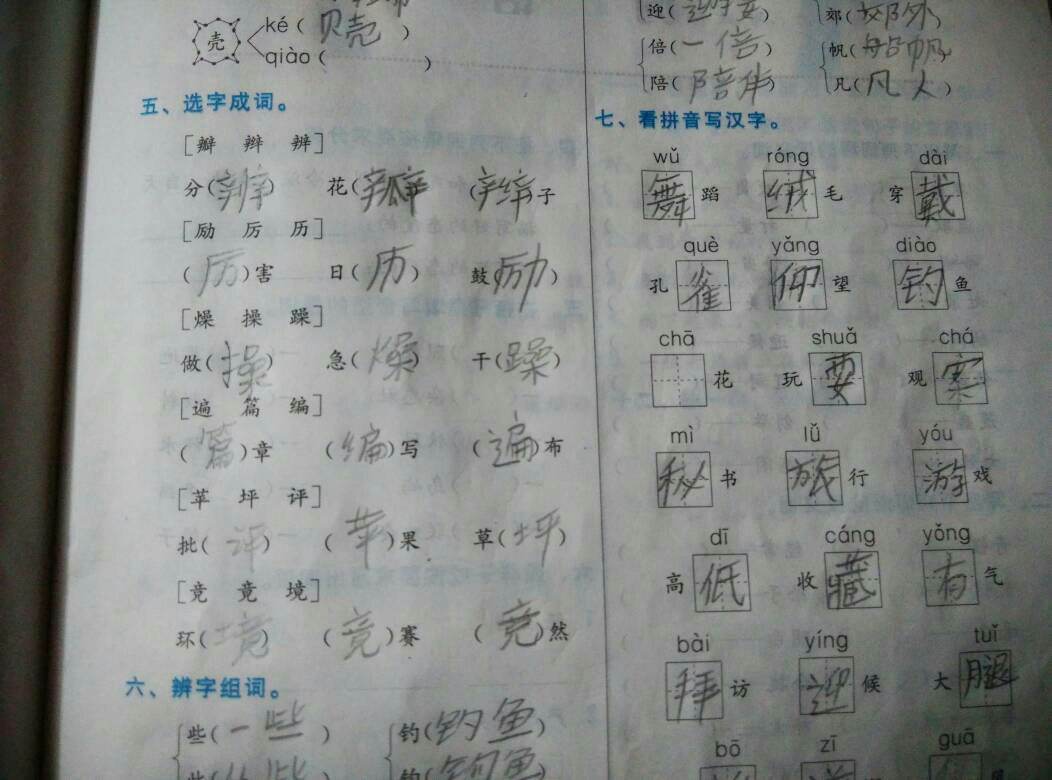 壳
ké(贝壳)
qiào( )
五、选字成词。
[瓣 辩 辨]
分(辨) 花(瓣) (辫)子
[励 厉 历]
(厉)害 日(历) 鼓(励)
[燥 操 躁]
做(操) 急(燥) 干(躁)
[遍 篇 编]
(篇)章 (编)写 (遍)布
[苹 坪 评]
批(评) (苹)果 草(坪)
[竞 竟 境]
环(境) (竟)赛 (竞)然
六、辨字组词。
些(一些) 钓(钓鱼)
迎( ) 郊(郊外)
倍(一倍) 帆(船帆)
陪(陪伴) 凡(凡人)
七、看拼音写汉字。
wǔ róng dài
舞蹈 绒毛 穿戴
què yǎng diào
孔雀 仰望 钓鱼
chā shuǎ chá
花 玩耍 观察
mì lǚ yóu
秘书 旅行 游戏
dī cáng yǒng
高低 收藏 有气
bài yíng tuǐ
拜访 迎候 大腿
bō zī guā